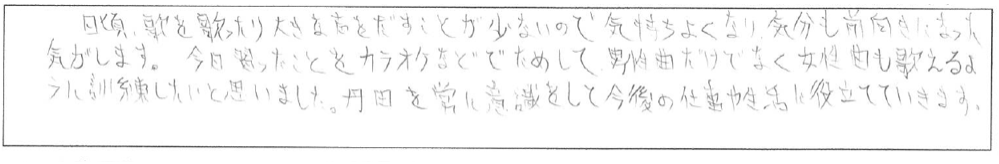 日頃、歌を歌ったり大きな声をだすことが少ないので気持ちよくなり、気分も前向きになった
気がします。今日習ったことをカラオケなどでためして、男性曲だけでなく女性曲も歌えるよ
うに訓練したいと思いました。丹田を常に意識をして今後の仕事や生活に役立てていきます。